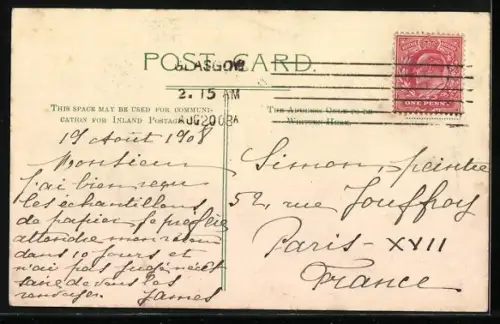 POST CARD.
GLASGOW
2. 15 AM
AUG 20 08 A
ONE PENNY
THIS SPACE MAY BE USED FOR COMMUNI-
CATION FOR INLAND POSTAGE
THE ADDRESS ONLY TO BE
WRITTEN HERE.
19 Août 1908
Monsieur
J'ai bien reçu
les échantillons
de papier. Je préfère
attendre mon retour
dans 10 jours et
n'ai pas jugé néces
saire de vous les
renvoyer. James
Simon, peintre
52, rue Jouffroy
Paris - XVII
France